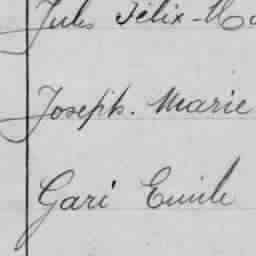 Jules Félix-Ma
Joseph. Marie
Gari Emile